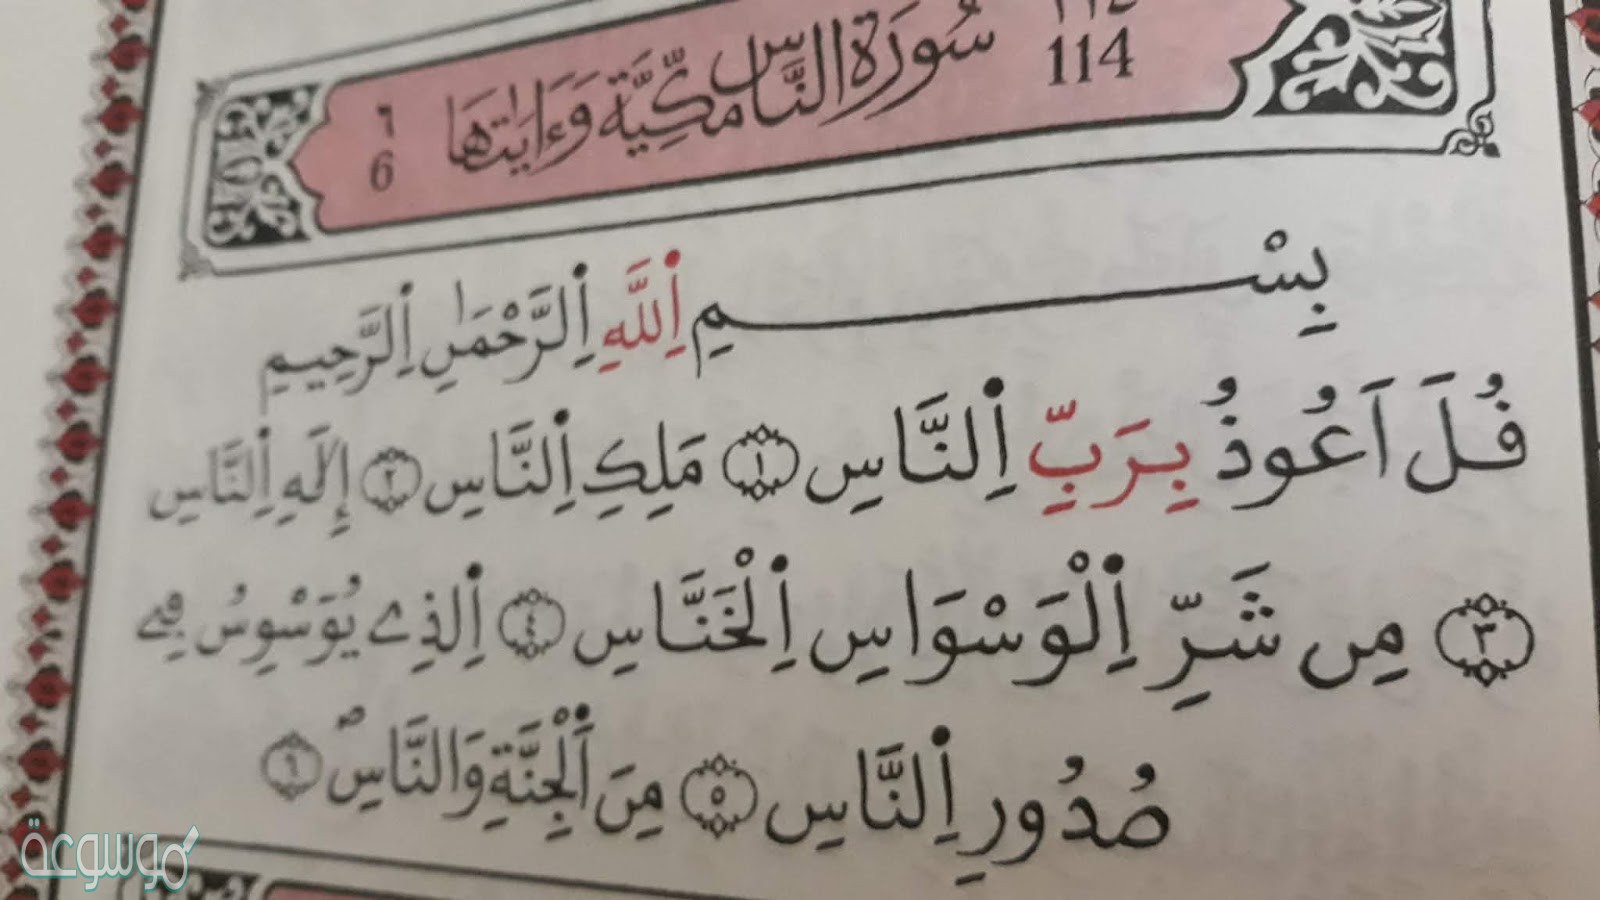 ١١٤
114
سُورَةُ النَّاسِ مَكِّيَّةٌ وَءَايَٰتُهَا
٦
6
بِسْمِ اِ۬للَّهِ اِ۬لرَّحْمَٰنِ اِ۬لرَّحِيمِ
قُلَ اَعُوذُ بِرَبِّ اِ۬لنَّاسِ ١ مَلِكِ اِ۬لنَّاسِ ٢ إِلَٰهِ اِ۬لنَّاسِ
٣ مِن شَرِّ اِ۬لْوَسْوَاسِ اِ۬لْخَنَّاسِ ٤ اِ۬لذِے يُوَسْوِسُ فِے
صُدُورِ اِ۬لنَّاسِ ٥ مِنَ اَ۬لْجِنَّةِ وَالنَّاسِۖ ٦
موسوعة